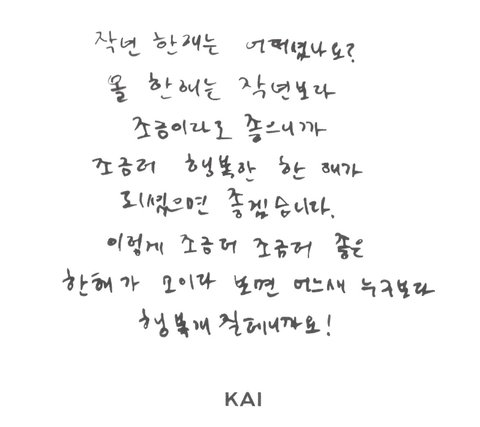 작년 한해는 어떠셨나요?
올 한해는 작년보다
조금이라도 좋으니까
조금더 행복한 한 해가
되셨으면 좋겠습니다.
이렇게 조금더 조금더 좋은
한해가 모이다 보면 어느새 누구보다
행복해질테니까요!
KAI